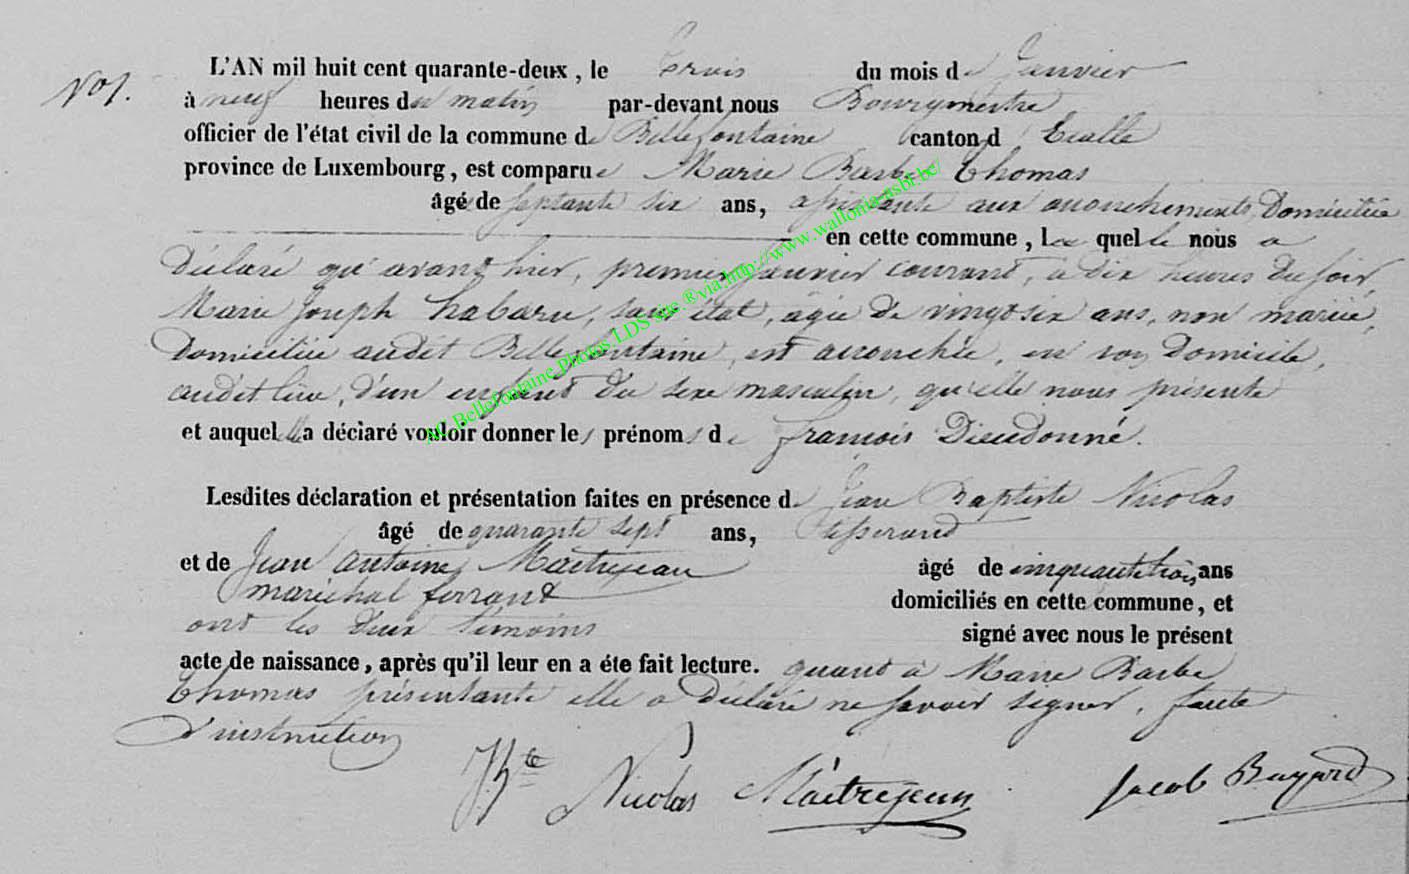 N° 1.
L'AN mil huit cent quarante-deux, le trois du mois de Janvier
à neuf heures du matin par-devant nous Bourgmestre
officier de l'état civil de la commune de Bellefontaine canton d' Etalle
province de Luxembourg, est comparue Marie Barbe Thomas
âgée de septante six ans, assistante aux accouchements, Domiciliée
en cette commune, laquelle nous a
Déclaré qu'avant hier, premier Janvier courant, à dix heures du soir,
Marie Joseph Habaru, sans état, âgée de vingt six ans, non mariée,
Domiciliée audit Bellefontaine, est accouchée, en son Domicile,
audit lieu, d'un enfant du sexe masculin, qu'elle nous présente
et auquel elle a déclaré vouloir donner les prénoms de françois Dieudonné.
Lesdites déclaration et présentation faites en présence de Jean Baptiste Nicolas
âgé de quarante sept ans, tisserand
et de Jean Antoine Maitrejean âgé de cinquante trois ans
maréchal ferrant domiciliés en cette commune, et
ont les deux témoins signé avec nous le présent
acte de naissance, après qu'il leur en a éte fait lecture. quant à Marie Barbe
Thomas présentante elle a Déclaré ne savoir signer, faute
d'instruction
JBte Nicolas Maitrejean Jacob Bayard
AC Bellefontaine Photos LDS site ®via http://www.wallonia-asbl.be/